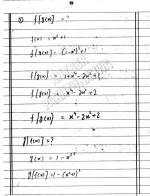 ① f[g(x)] = ?
f(x) = x²+1
f[g(x)] = (1-x²)²+1
f[g(x)] = 1+x⁴-2x²+1
f[g(x)] = x⁴-2x²+2
f[g(x)] = x⁴-2x²+2
g[f(x)] = ?
g(x) = 1-x²
g[f(x)] = 1-(x²+1)²